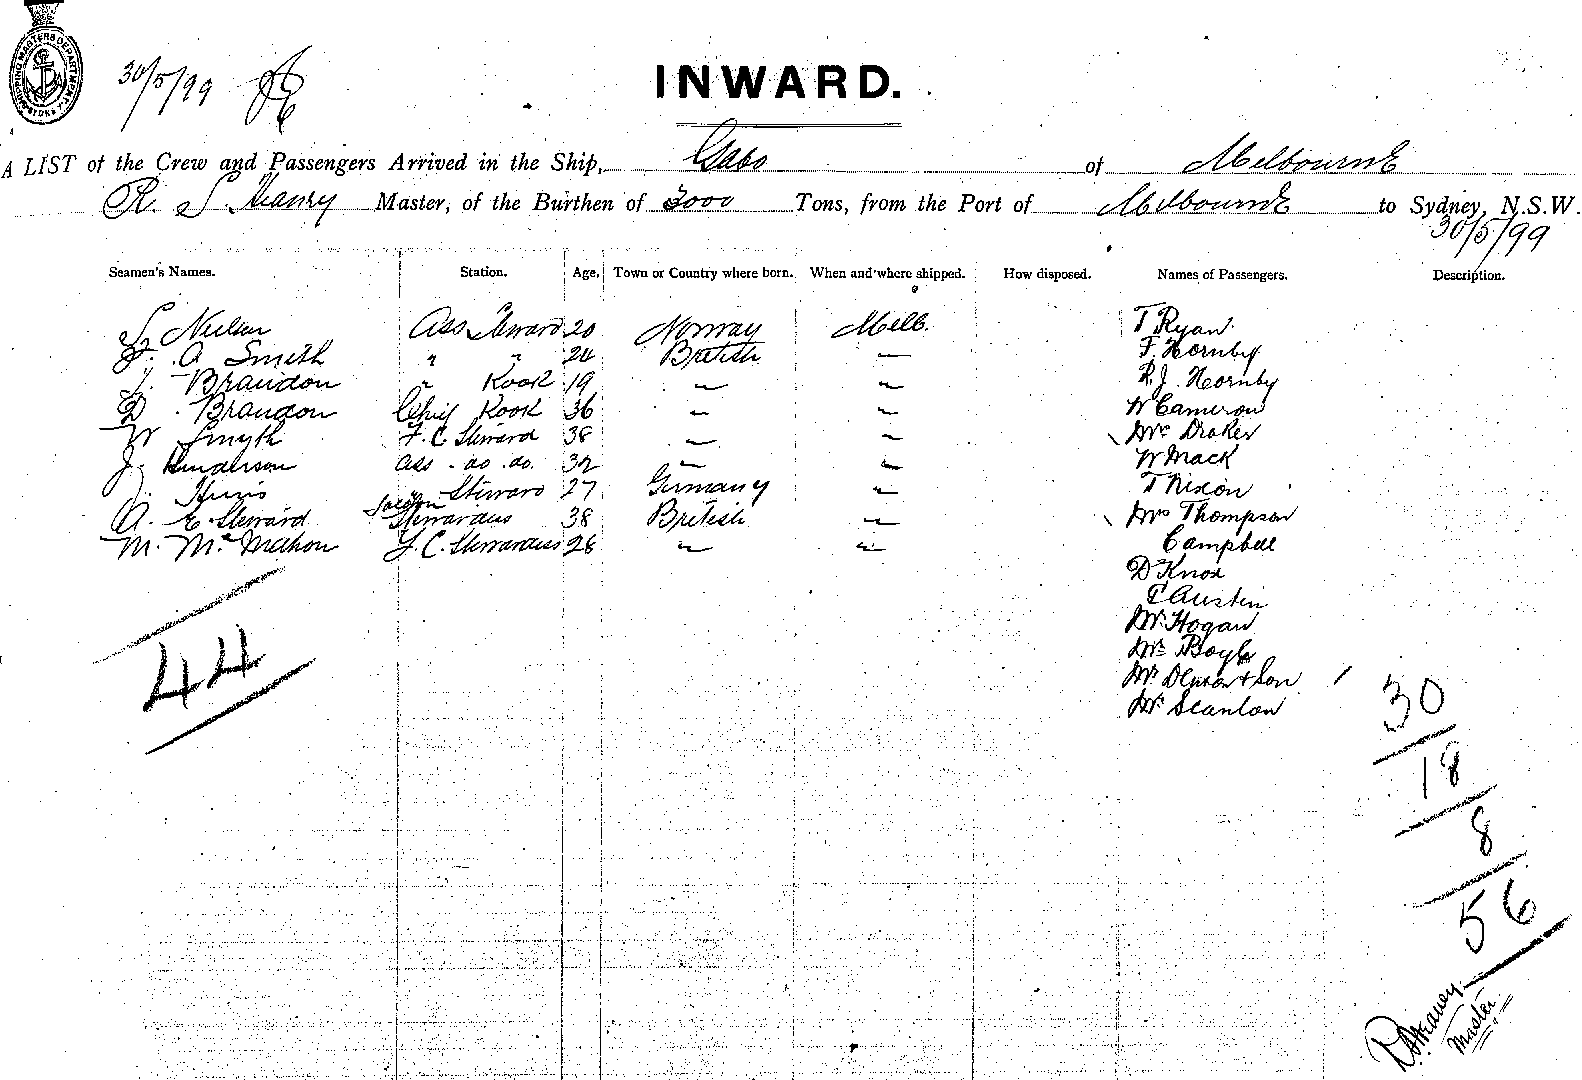 SHIPPING MASTERS DEPARTMENT
30/5/99
INWARD.
A LIST of the Crew and Passengers Arrived in the Ship, Gabo of Melbourne
R. S Meaney Master, of the Burthen of 3000 Tons, from the Port of Melbourne to Sydney, N.S.W.
30/5/99
Seamen's Names. Station. Age, Town or Country where born. When and where shipped. How disposed. Names of Passengers. Description.
Neilsen Ass Steward 20 Norway Melb. T Ryan
J. A Smith " " 24 British — F. Hornby
Brandon " Kook 19 — — R. J. Hornby
D Brandon Chief Kook 36 — — W Cameron
W Smyth F. C Steward 38 — — Mrs Draker
J Henderson Ass. do. do. 32 — — W Mack
J. Steward 27 Germany — T Nixon
A. E. Steward Saloon Stewardess 38 British — Mrs Thompson
M. Mc Mahon F. C. Stewardess 28 — — Campbell
D Knox
C Austin
Mr Hogan
Mrs Boyle
44
Mr Denton & Son
Mr Scanlon
30
18
8
56
R S Meaney
Master